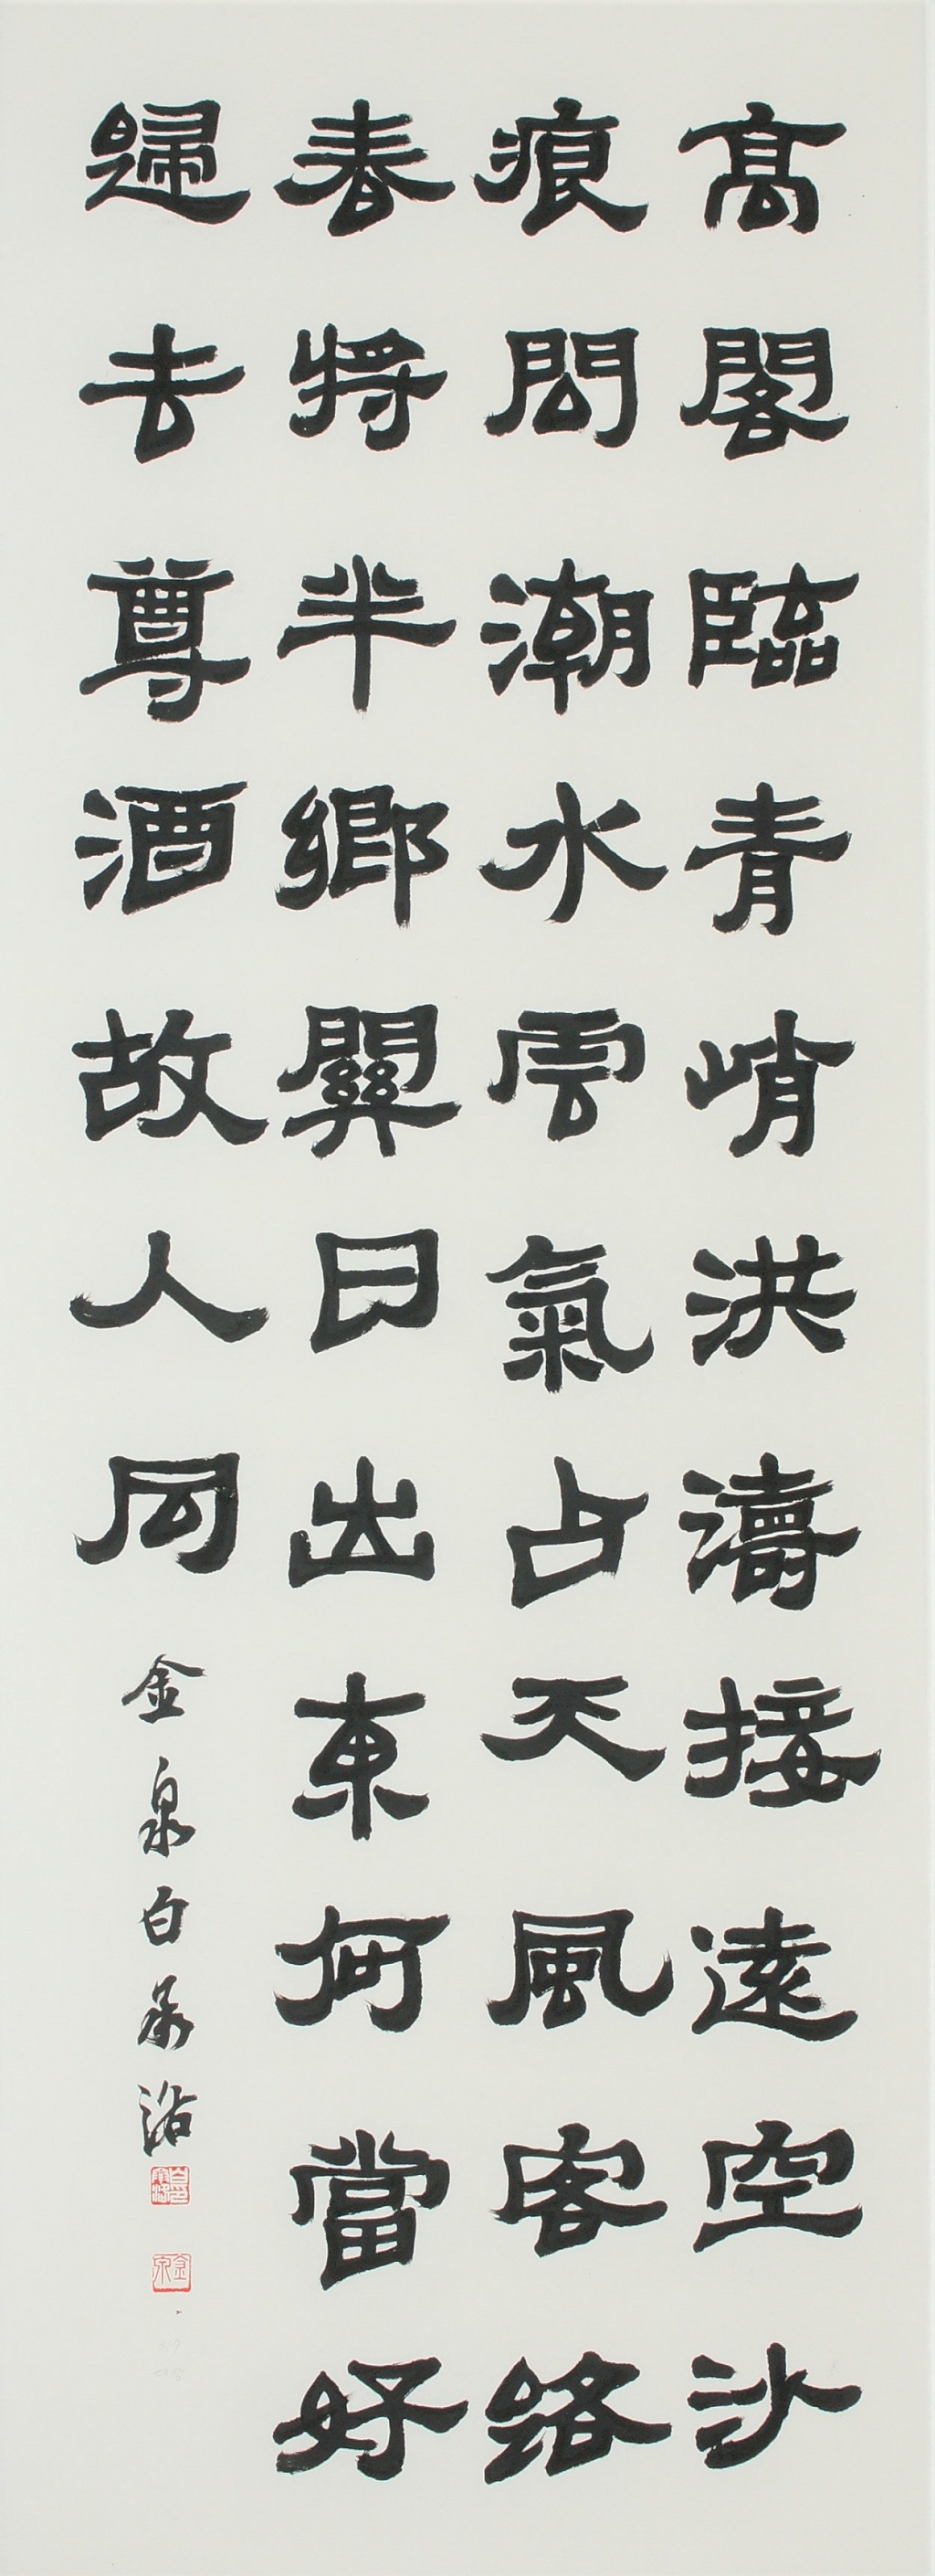 高閣臨青峭洪濤接遠空沙
痕問潮水雲氣占天風客路
春將半鄉關日出東何當好
歸去尊酒故人同
金泉白
金泉